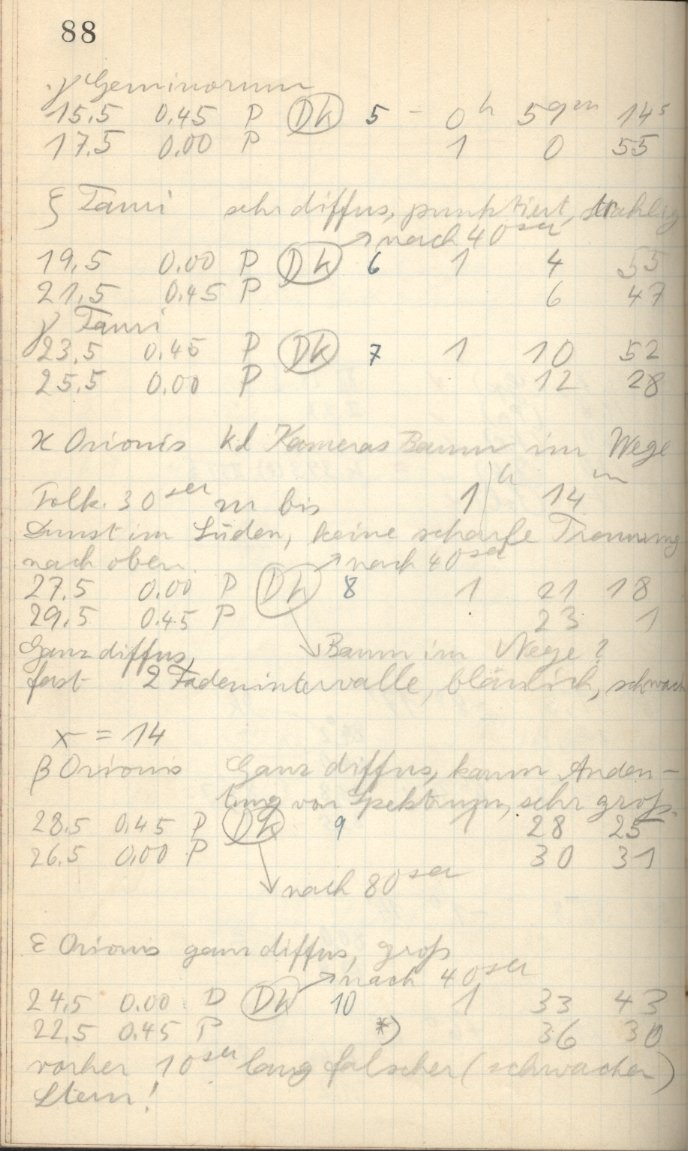 88
γ Geminorum
15.5 0.45 P Dk 5 - 0h 59m 14s
17.5 0.00 P 1 0 55
ξ Tauri sehr diffus, punktiert, strahlig
nach 40sec
19.5 0.00 P Dk 6 1 4 55
21.5 0.45 P 6 47
γ Tauri
23.5 0.45 P Dk 7 1 10 52
25.5 0.00 P 12 28
ϰ Orionis kl Kameras Baum im Wege
Folk. 30sec nr bis 1h 14m
Dunst im Süden, keine scharfe Trennung
nach oben. nach 40sec
27.5 0.00 P Dk 8 1 21 18
29.5 0.45 P 23 1
Ganz diffus, Baum im Wege?
fast 2 Fadenintervalle, bläulich, schwach
x = 14
β Orionis Ganz diffus, kaum Andeu-
tung von Spektrum, sehr groß.
28.5 0.45 P Dk 9 1 28 25
26.5 0.00 P 30 31
nach 80sec
ε Orionis ganz diffus, groß
nach 40sec
24.5 0.00 P Dk 10 1 33 43
22.5 0.45 P *) 36 30
vorher 10sec lang falscher (schwacher)
Stern!